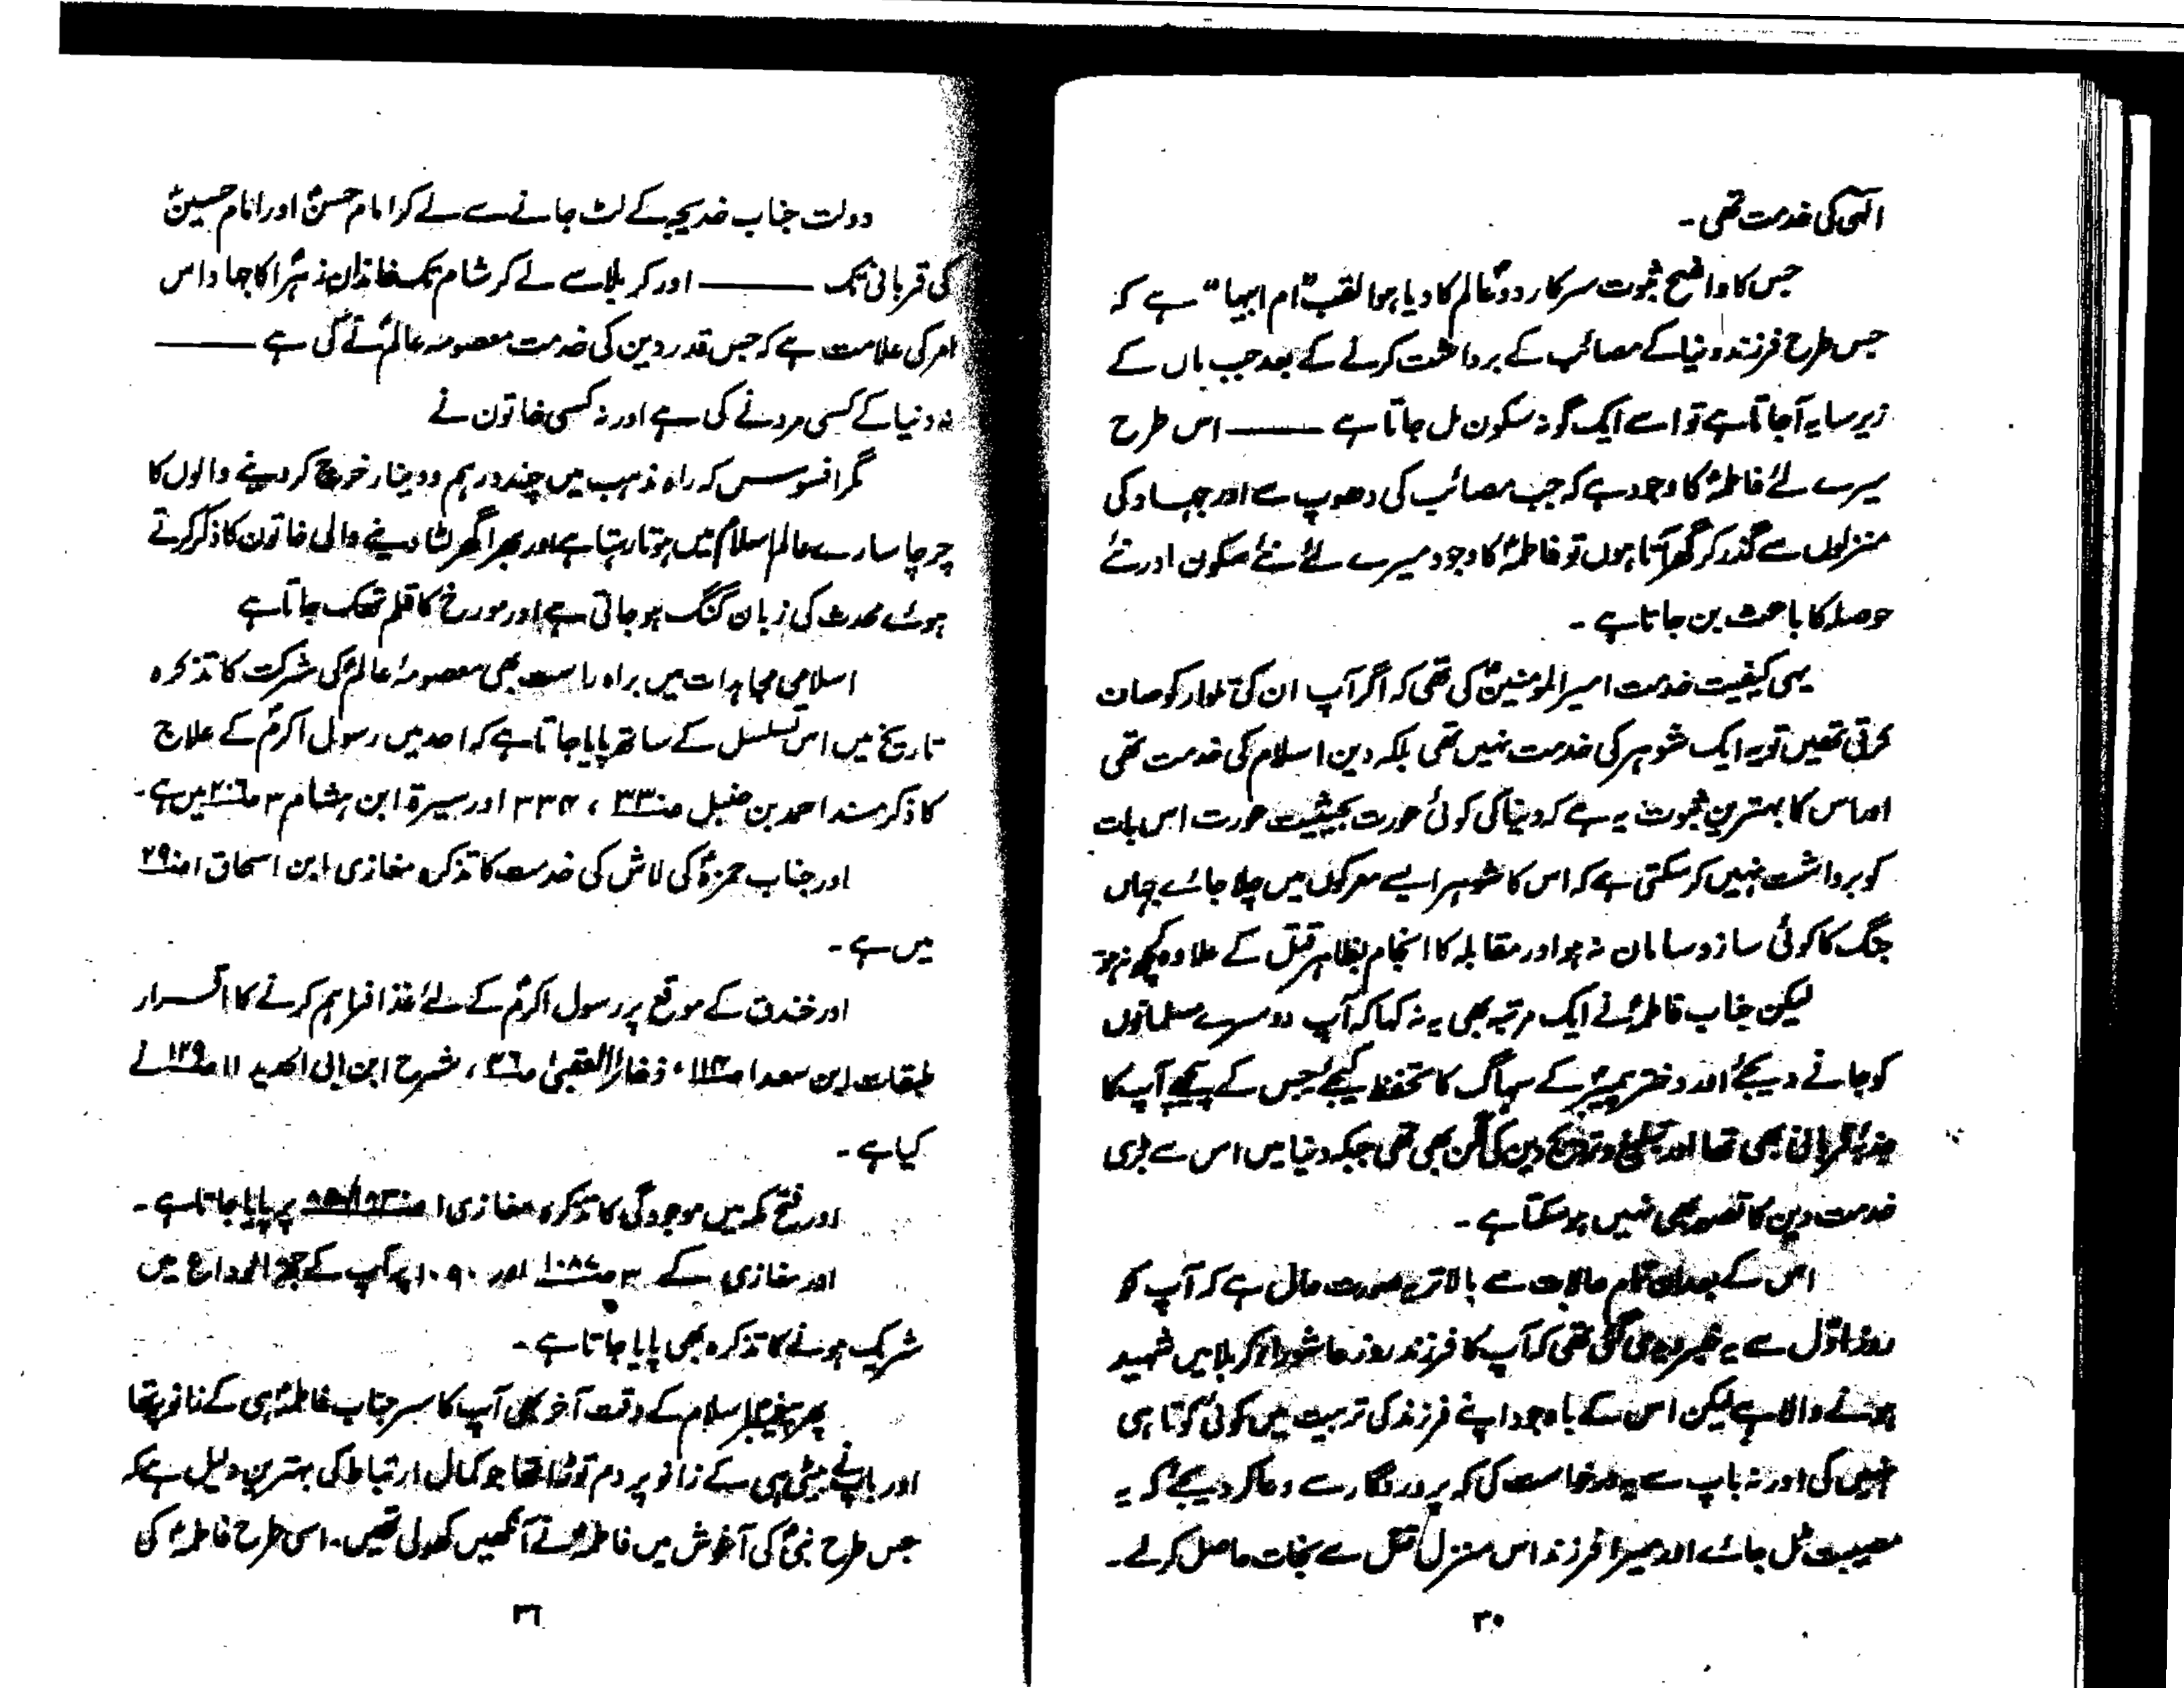 الٰہی کی خدمت تھی۔
جس کا واضح ثبوت سرکار دو عالمؐ کا دیا ہوا لقب "ام ابیہا" ہے کہ
جس طرح فرزند دنیا کے مصائب کے برداشت کرنے کے بعد جب ماں کے
زیر سایہ آجاتا ہے تو اسے ایک گونہ سکون مل جاتا ہے ——— اس طرح
میرے لئے فاطمہؑ کا وجود ہے کہ جب مصائب کی دھوپ سے اور جہاد کی
منزلوں سے گذر کر گھر آتا ہوں تو فاطمہؑ کا وجود میرے لئے نئے سکون اور نئے
حوصلہ کا باعث بن جاتا ہے۔
یہی کیفیت خدمت امیرالمومنینؑ کی تھی کہ اگر آپ ان کی تلوار کو صاف
کرتی تھیں تو یہ ایک شوہر کی خدمت نہیں تھی بلکہ دین اسلام کی خدمت تھی
اور اس کا بہترین ثبوت یہ ہے کہ دنیا کی کوئی عورت بحیثیت عورت اس بات
کو برداشت نہیں کر سکتی ہے کہ اس کا شوہر ایسے معرکوں میں چلا جائے جہاں
جنگ کا کوئی ساز و سامان نہ ہو اور مقابلہ کا انجام بظاہر قتل کے علاوہ کچھ نہ ہو
لیکن جناب فاطمہؑ نے ایک مرتبہ بھی یہ نہ کہا کہ آپ دوسرے مسلمانوں
کو جانے دیجئے اور دختر پیمبرؐ کے سہاگ کا تحفظ کیجئے جس کے پیچھے آپ کا
جذبۂ قربانی بھی تھا اور تبلیغ و ترویج دین کی لگن بھی تھی جبکہ دنیا میں اس سے بڑی
خدمت دین کا تصور بھی نہیں ہو سکتا ہے۔
اس کے بعد ان تمام حالات سے بالاتر یہ صورت حال ہے کہ آپ کو
روز اول سے یہ خبر دیدی گئی تھی کہ آپ کا فرزند روز عاشورا کربلا میں شہید
ہونے والا ہے لیکن اس کے باوجود اپنے فرزند کی تربیت میں کوئی کوتاہی
نہیں کی اور نہ باپ سے یہ درخواست کی کہ پروردگار سے دعا کر دیجئے کہ یہ
مصیبت ٹل جائے اور میرا فرزند اس منزل قتل سے نجات حاصل کرلے۔
۳۰
دولت جناب خدیجہ کے لٹ جانے سے لے کر امام حسنؑ اور امام حسینؑ
کی قربانی تک ——— اور کربلا سے لے کر شام تک خاندان زہراؑ کا جہاد اس
امر کی علامت ہے کہ جس قدر دین کی خدمت معصومہ عالمؑ نے کی ہے ———
نہ دنیا کے کسی مرد نے کی ہے اور نہ کسی خاتون نے
مگر افسوس کہ راہ مذہب میں چند درہم و دینار خرچ کر دینے والوں کا
چرچا سارے عالم اسلام میں ہوتا رہتا ہے اور بھرا گھر لٹا دینے والی خاتون کا ذکر کرتے
ہوئے محدث کی زبان گنگ ہو جاتی ہے اور مورخ کا قلم تھک جاتا ہے
اسلامی مجاہدات میں براہ راست بھی معصومۂ عالمؑ کی شرکت کا تذکرہ
تاریخ میں اس تسلسل کے ساتھ پایا جاتا ہے کہ احد میں رسول اکرمؐ کے علاج
کا ذکر مسند احمد بن حنبل ص۳۳۰، ۳۳۴ اور سیرۃ ابن ہشام ۳ ص۲۰۶ میں ہے۔
اور جناب حمزہؑ کی لاش کی خدمت کا تذکرہ مغازی ابن اسحاق ۱ ص۲۹۰
میں ہے۔
اور خندق کے موقع پر رسول اکرمؐ کے لئے غذا فراہم کرنے کا اقرار
طبقات ابن سعد ۱ ص۱۱۴، ذخائر العقبیٰ ص۴۶، شرح ابن ابی الحدید ۱۱ ص۱۲۹ نے
کیا ہے۔
اور فتح مکہ میں موجودگی کا تذکرہ مغازی ۱ پر پایا جاتا ہے۔
اور مغازی کے ۳ ص۱۰۸۷ اور ۱۰۹۰ پر آپ کے حجۃ الوداع میں
شریک ہونے کا تذکرہ بھی پایا جاتا ہے۔
پھر پیغمبر اسلام کے وقت آخر بھی آپ کا سر جناب فاطمہؑ ہی کے زانو پر تھا
اور باپ نے بیٹی ہی کے زانو پر دم توڑا تھا جو کمال ارتباط کی بہترین دلیل ہے کہ
جس طرح نبیؐ کی آغوش میں فاطمہؑ نے آنکھیں کھولی تھیں۔ اسی طرح فاطمہؑ کی
۳۱